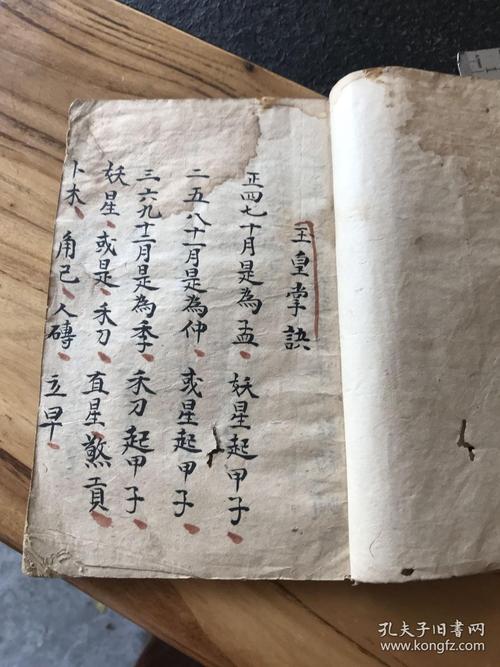 玉皇掌訣
正四七十月是為孟、妖星起甲子、
二五八十一月是為仲、或星起甲子、
三六九十二月是為季、禾刀起甲子、
妖星、或星、禾刀、直星、煞貢、
卜木、角己、人磚、立早、
孔夫子旧书网
www.kongfz.com